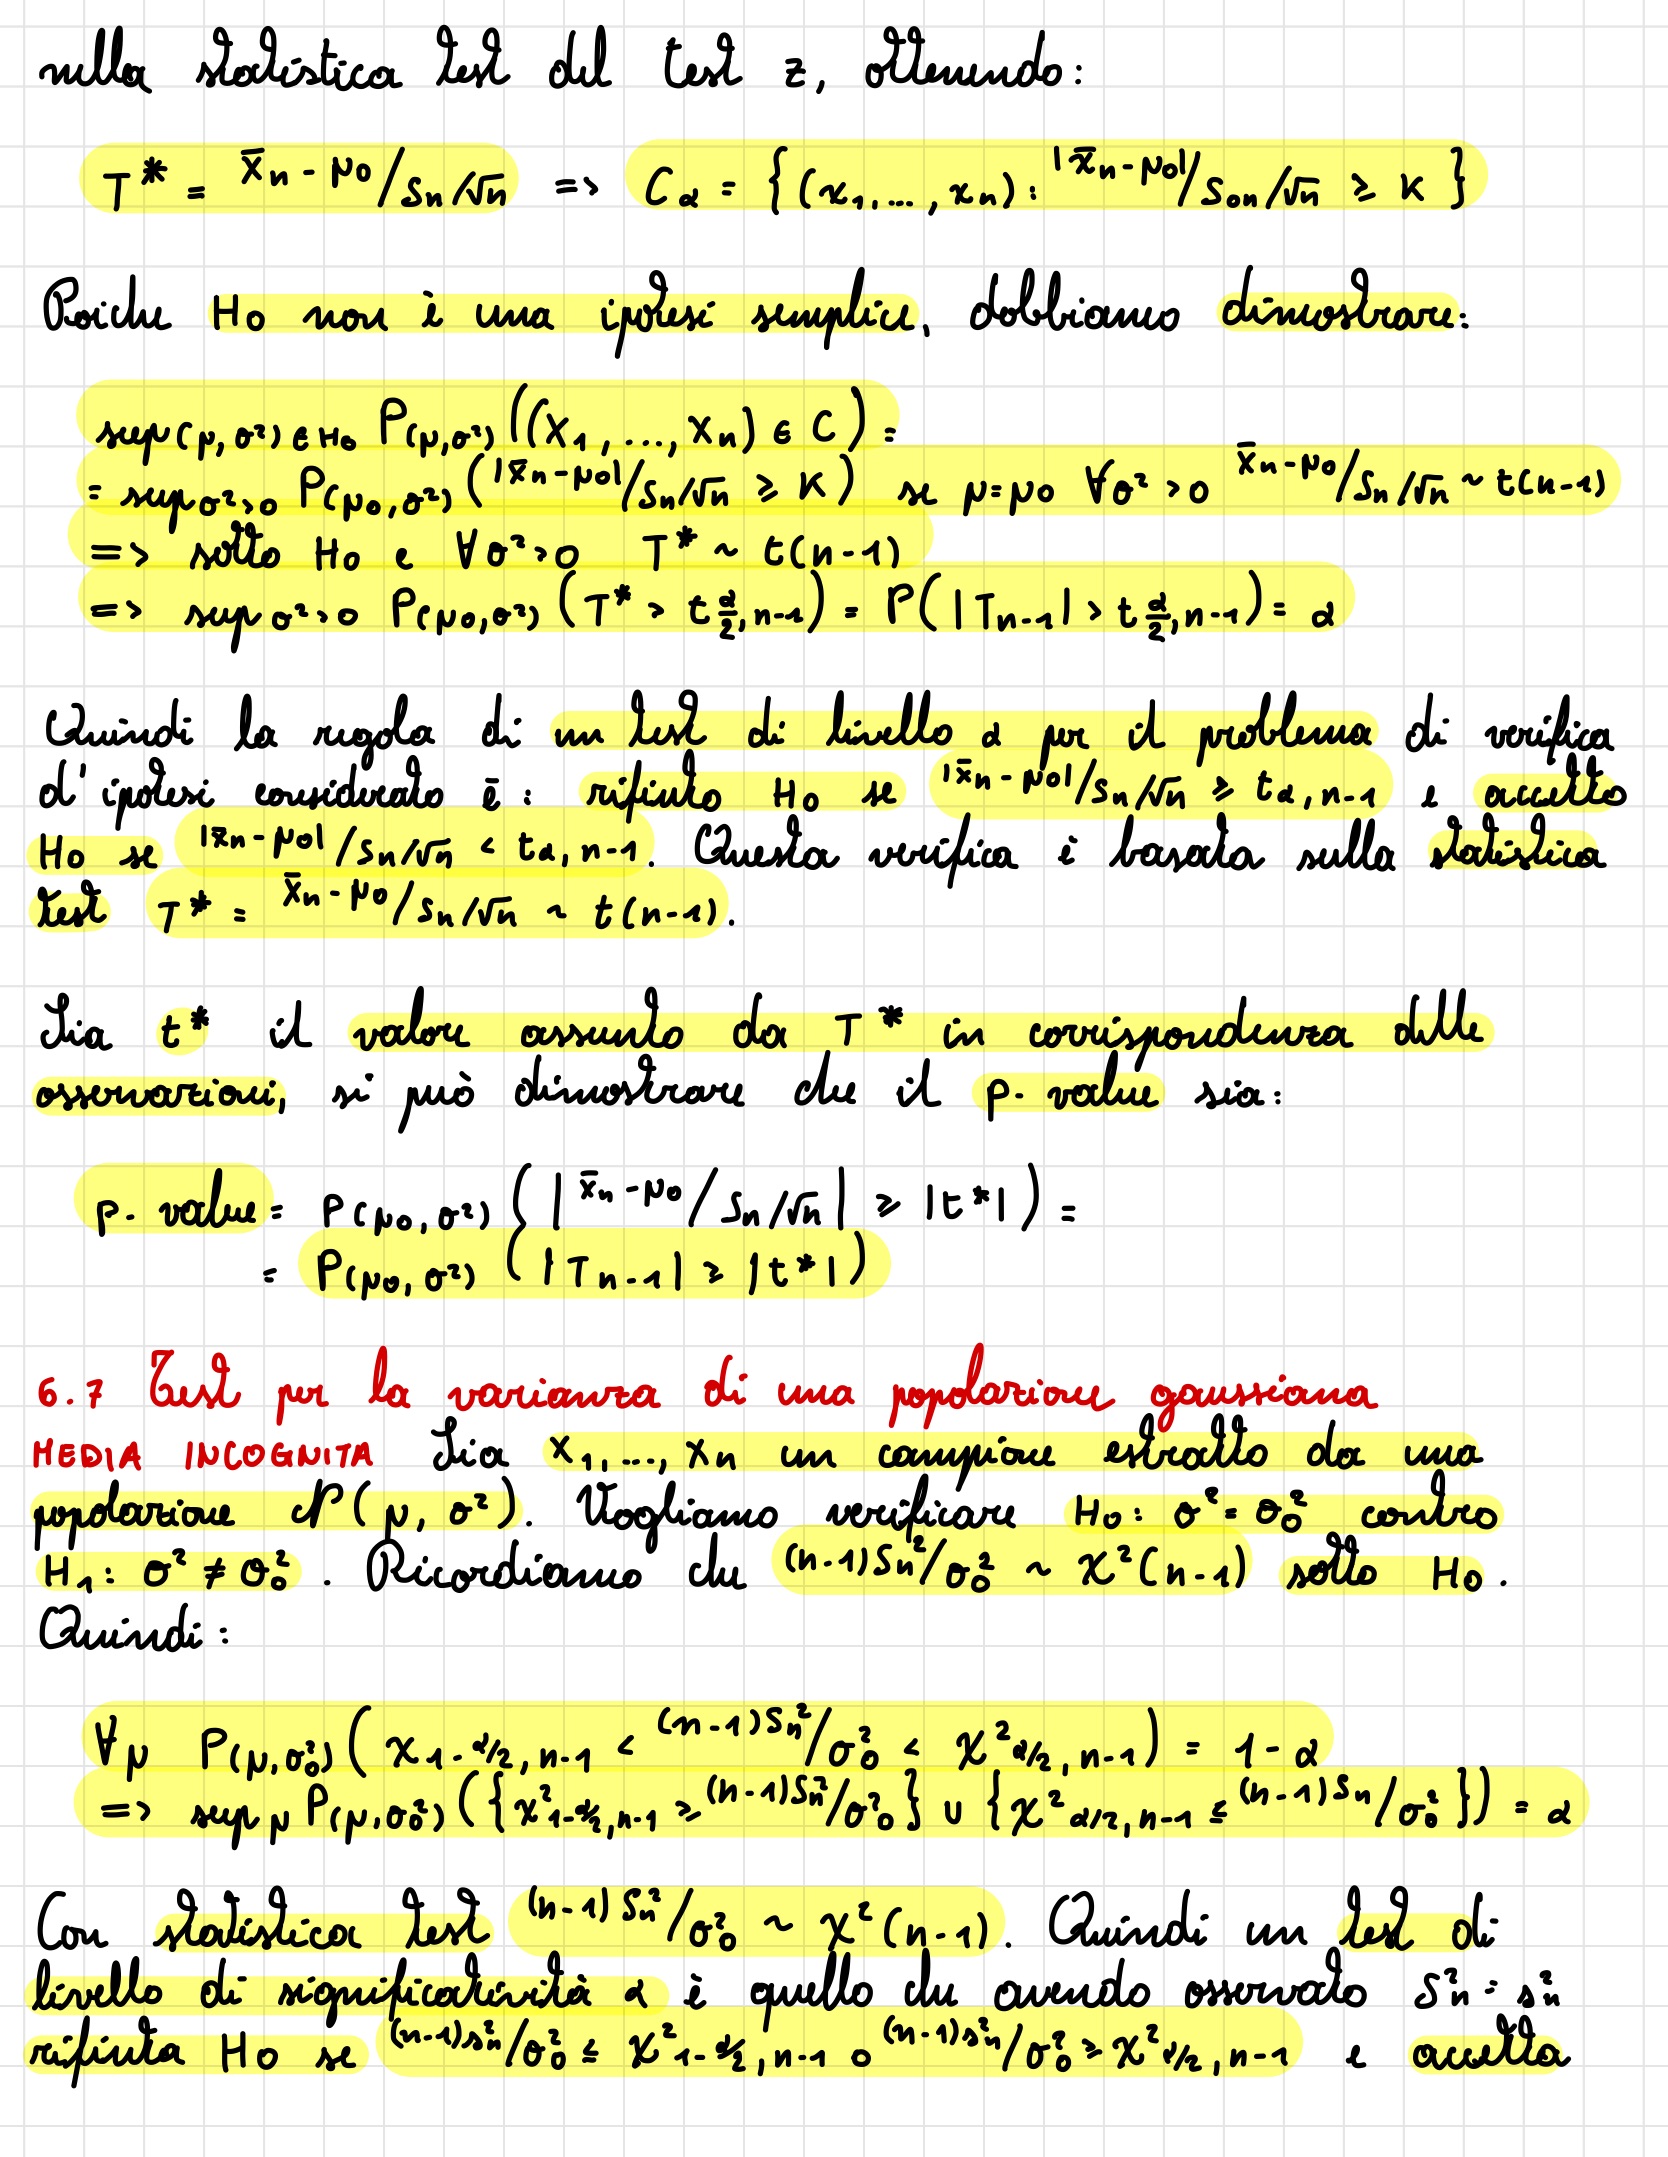 nella statistica test del test z, ottenendo:
T* = x̄n - μ0/sn/√n => Cα = {(x1,..., xn): |x̄n - μ0|/s0n/√n ≥ K}
Poiche H0 non è una ipotesi semplice, dobbiamo dimostrare:
sup(μ, σ²) ∈ H0 P(μ,σ²)((X1,..., Xn) ∈ C) =
= supσ²>0 P(μ0, σ²)(|x̄n - μ0|/sn/√n ≥ K) se μ=μ0 ∀σ²>0 x̄n - μ0/Sn/√n ~ t(n-1)
=> sotto H0 e ∀σ²>0 T* ~ t(n-1)
=> supσ²>0 P(μ0,σ²)(T* > t α/2, n-1) = P(|Tn-1| > t α/2, n-1) = α
Quindi la regola di un test di livello α per il problema di verifica
d'ipotesi considerato è: rifiuto H0 se |x̄n - μ0|/sn/√n ≥ tα, n-1 e accetto
H0 se |x̄n - μ0|/sn/√n < tα, n-1. Questa verifica è basata sulla statistica
test T* = x̄n - μ0/sn/√n ~ t(n-1).
Sia t* il valore assunto da T* in corrispondenza delle
osservazioni, si può dimostrare che il p-value sia:
p-value = P(μ0, σ²)(|x̄n - μ0/Sn/√n| ≥ |t*|) =
= P(μ0, σ²)(|Tn-1| ≥ |t*|)
6.7 Test per la varianza di una popolazione gaussiana
MEDIA INCOGNITA Sia X1,..., Xn un campione estratto da una
popolazione N(μ, σ²). Vogliamo verificare H0: σ² = σ0² contro
H1: σ² ≠ σ0². Ricordiamo che (n-1)Sn²/σ0² ~ χ²(n-1) sotto H0.
Quindi:
∀μ P(μ,σ0²)(χ1-α/2, n-1 < (n-1)Sn²/σ0² < χ²α/2, n-1) = 1-α
=> supμ P(μ,σ0²)({χ²1-α/2, n-1 ≥ (n-1)Sn²/σ0²} ∪ {χ²α/2, n-1 ≤ (n-1)Sn/σ0²}) = α
Con statistica test (n-1)Sn²/σ0² ~ χ²(n-1). Quindi un test di
livello di significatività α è quello che avendo osservato Sn² = sn²
rifiuta H0 se (n-1)sn²/σ0² ≤ χ²1-α/2, n-1 o (n-1)sn²/σ0² ≥ χ²α/2, n-1 e accetta